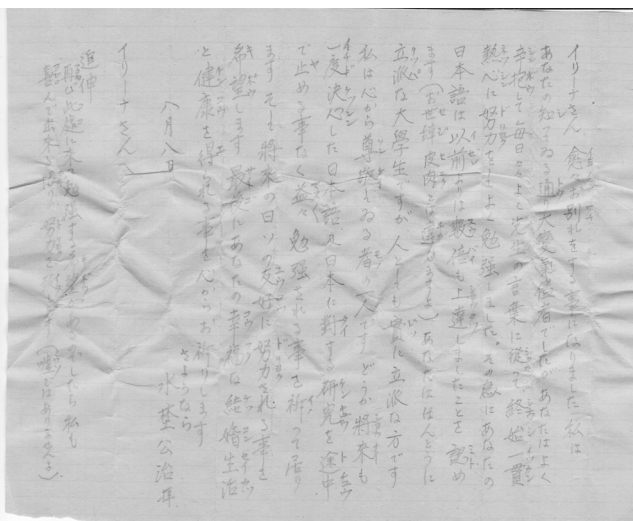 イリーナさん 愈々お別れをする事になりました 私は
あなたの知ってゐる通り大變 でしたが あなたはよく
辛抱して毎日々よく先生の言葉に従って、終始一貫
熱心に努力をよく勉強しました。その為にあなたの
日本語は以前より数倍も上達しましたことを認め
ます（お世辞皮肉とは違ひますよ）あなたはほんとうに
立派な大學生ですが 人としても實に立派な方です
私は心から尊敬してゐる者の一人です どうか將来も
一度決心した日本語及日本に對する研究を途中
で止める事なく益々勉強される事を祈って居り
ます そして將来の日ソの友好に努力される事を
希望します 最後にあなたの幸福な結婚生活
と健康を得られる事を心からお祈りします
さようなら
八月八日
水 公治拝
イリーナさん
追伸
再び此處に来て勉強する でしたら 私も
喜んで出来る限り努力を します（嘘ではありませんよ）